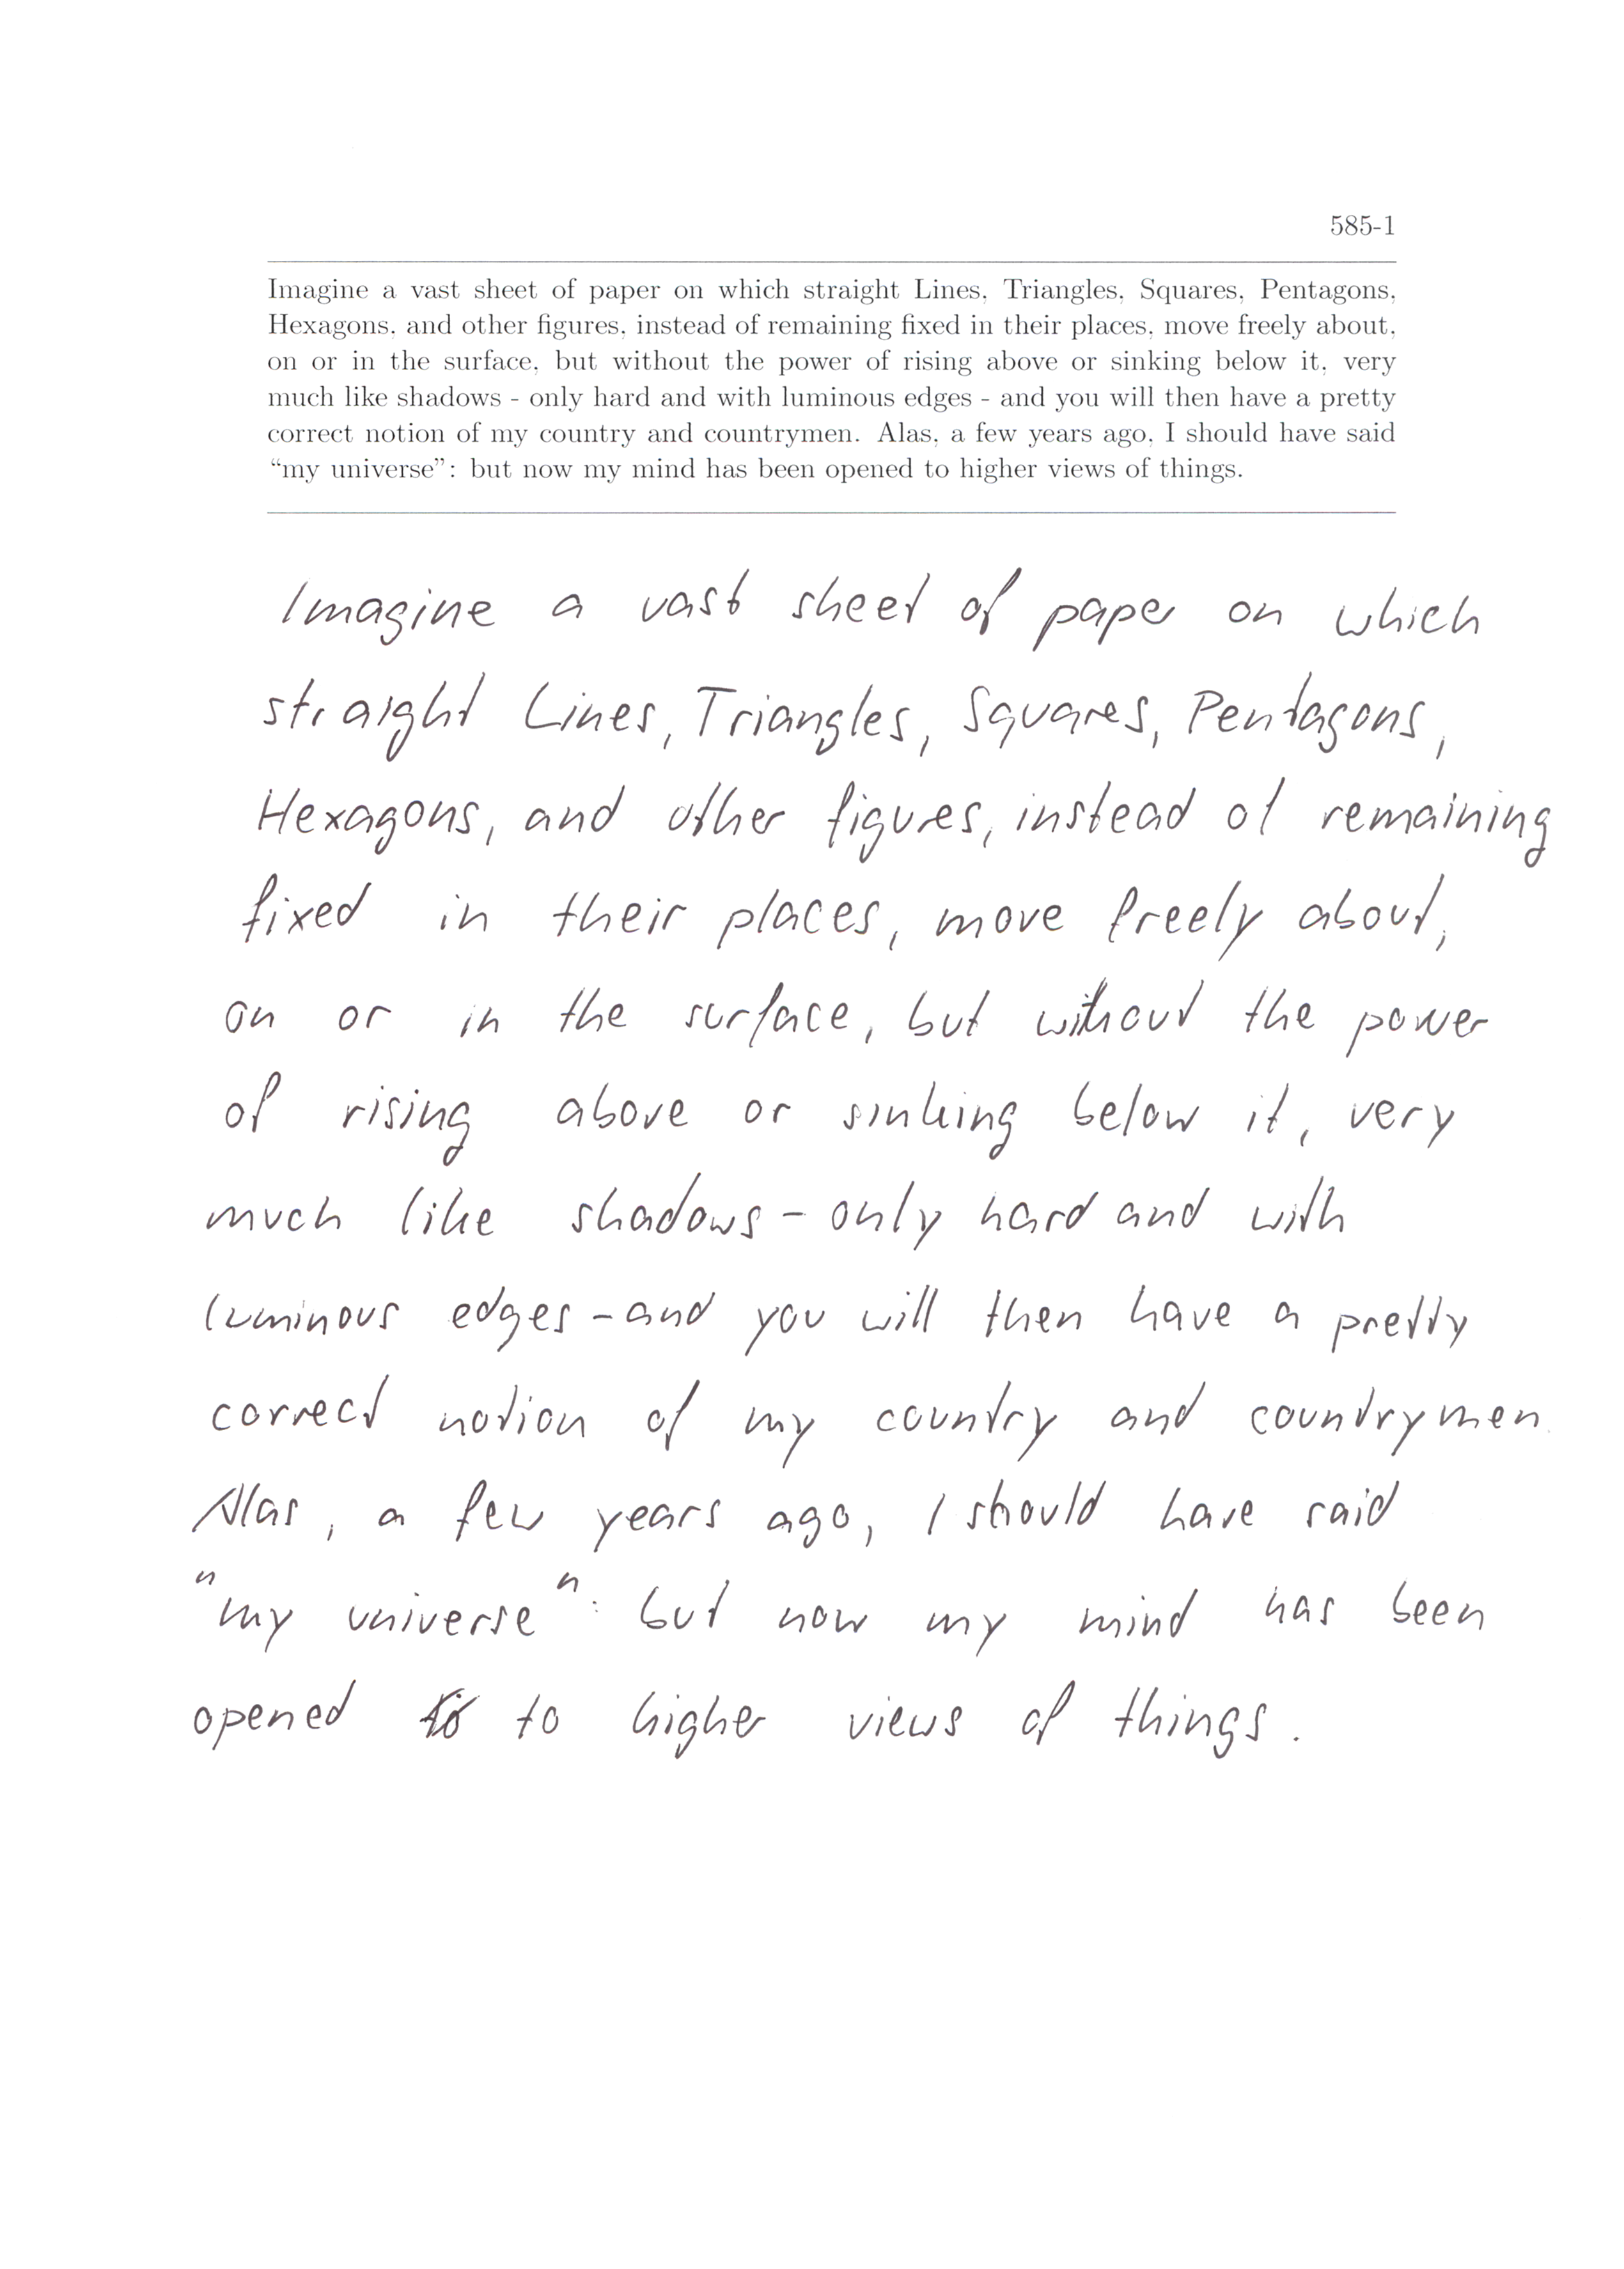 585-1
Imagine a vast sheet of paper on which straight Lines, Triangles, Squares, Pentagons,
Hexagons, and other figures, instead of remaining fixed in their places, move freely about,
on or in the surface, but without the power of rising above or sinking below it, very
much like shadows - only hard and with luminous edges - and you will then have a pretty
correct notion of my country and countrymen. Alas, a few years ago, I should have said
“my universe”: but now my mind has been opened to higher views of things.
Imagine a vast sheet of paper on which
straight Lines, Triangles, Squares, Pentagons,
Hexagons, and other figures, instead of remaining
fixed in their places, move freely about,
on or in the surface, but without the power
of rising above or sinking below it, very
much like shadows - only hard and with
luminous edges - and you will then have a pretty
correct notion of my country and countrymen.
Alas, a few years ago, I should have said
"my universe": but now my mind has been
opened to higher views of things.